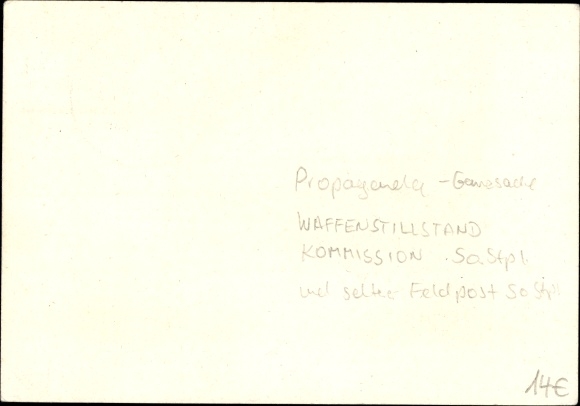 Propaganda - Ganzsache
WAFFENSTILLSTAND
KOMMISSION So.Stpl.
und selten Feldpost So Stpl.
14€